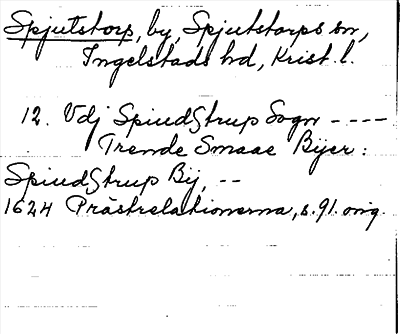 Spjutstorp, by, Spjutstorps sn,
Ingelstads hd, Krist. l.
12. Vdj SpiudStrup Sogn ----
Trende Smaae Bijer:
SpiudStrup Bij, --
1624 Prästrelationerna, s. 91. orig.